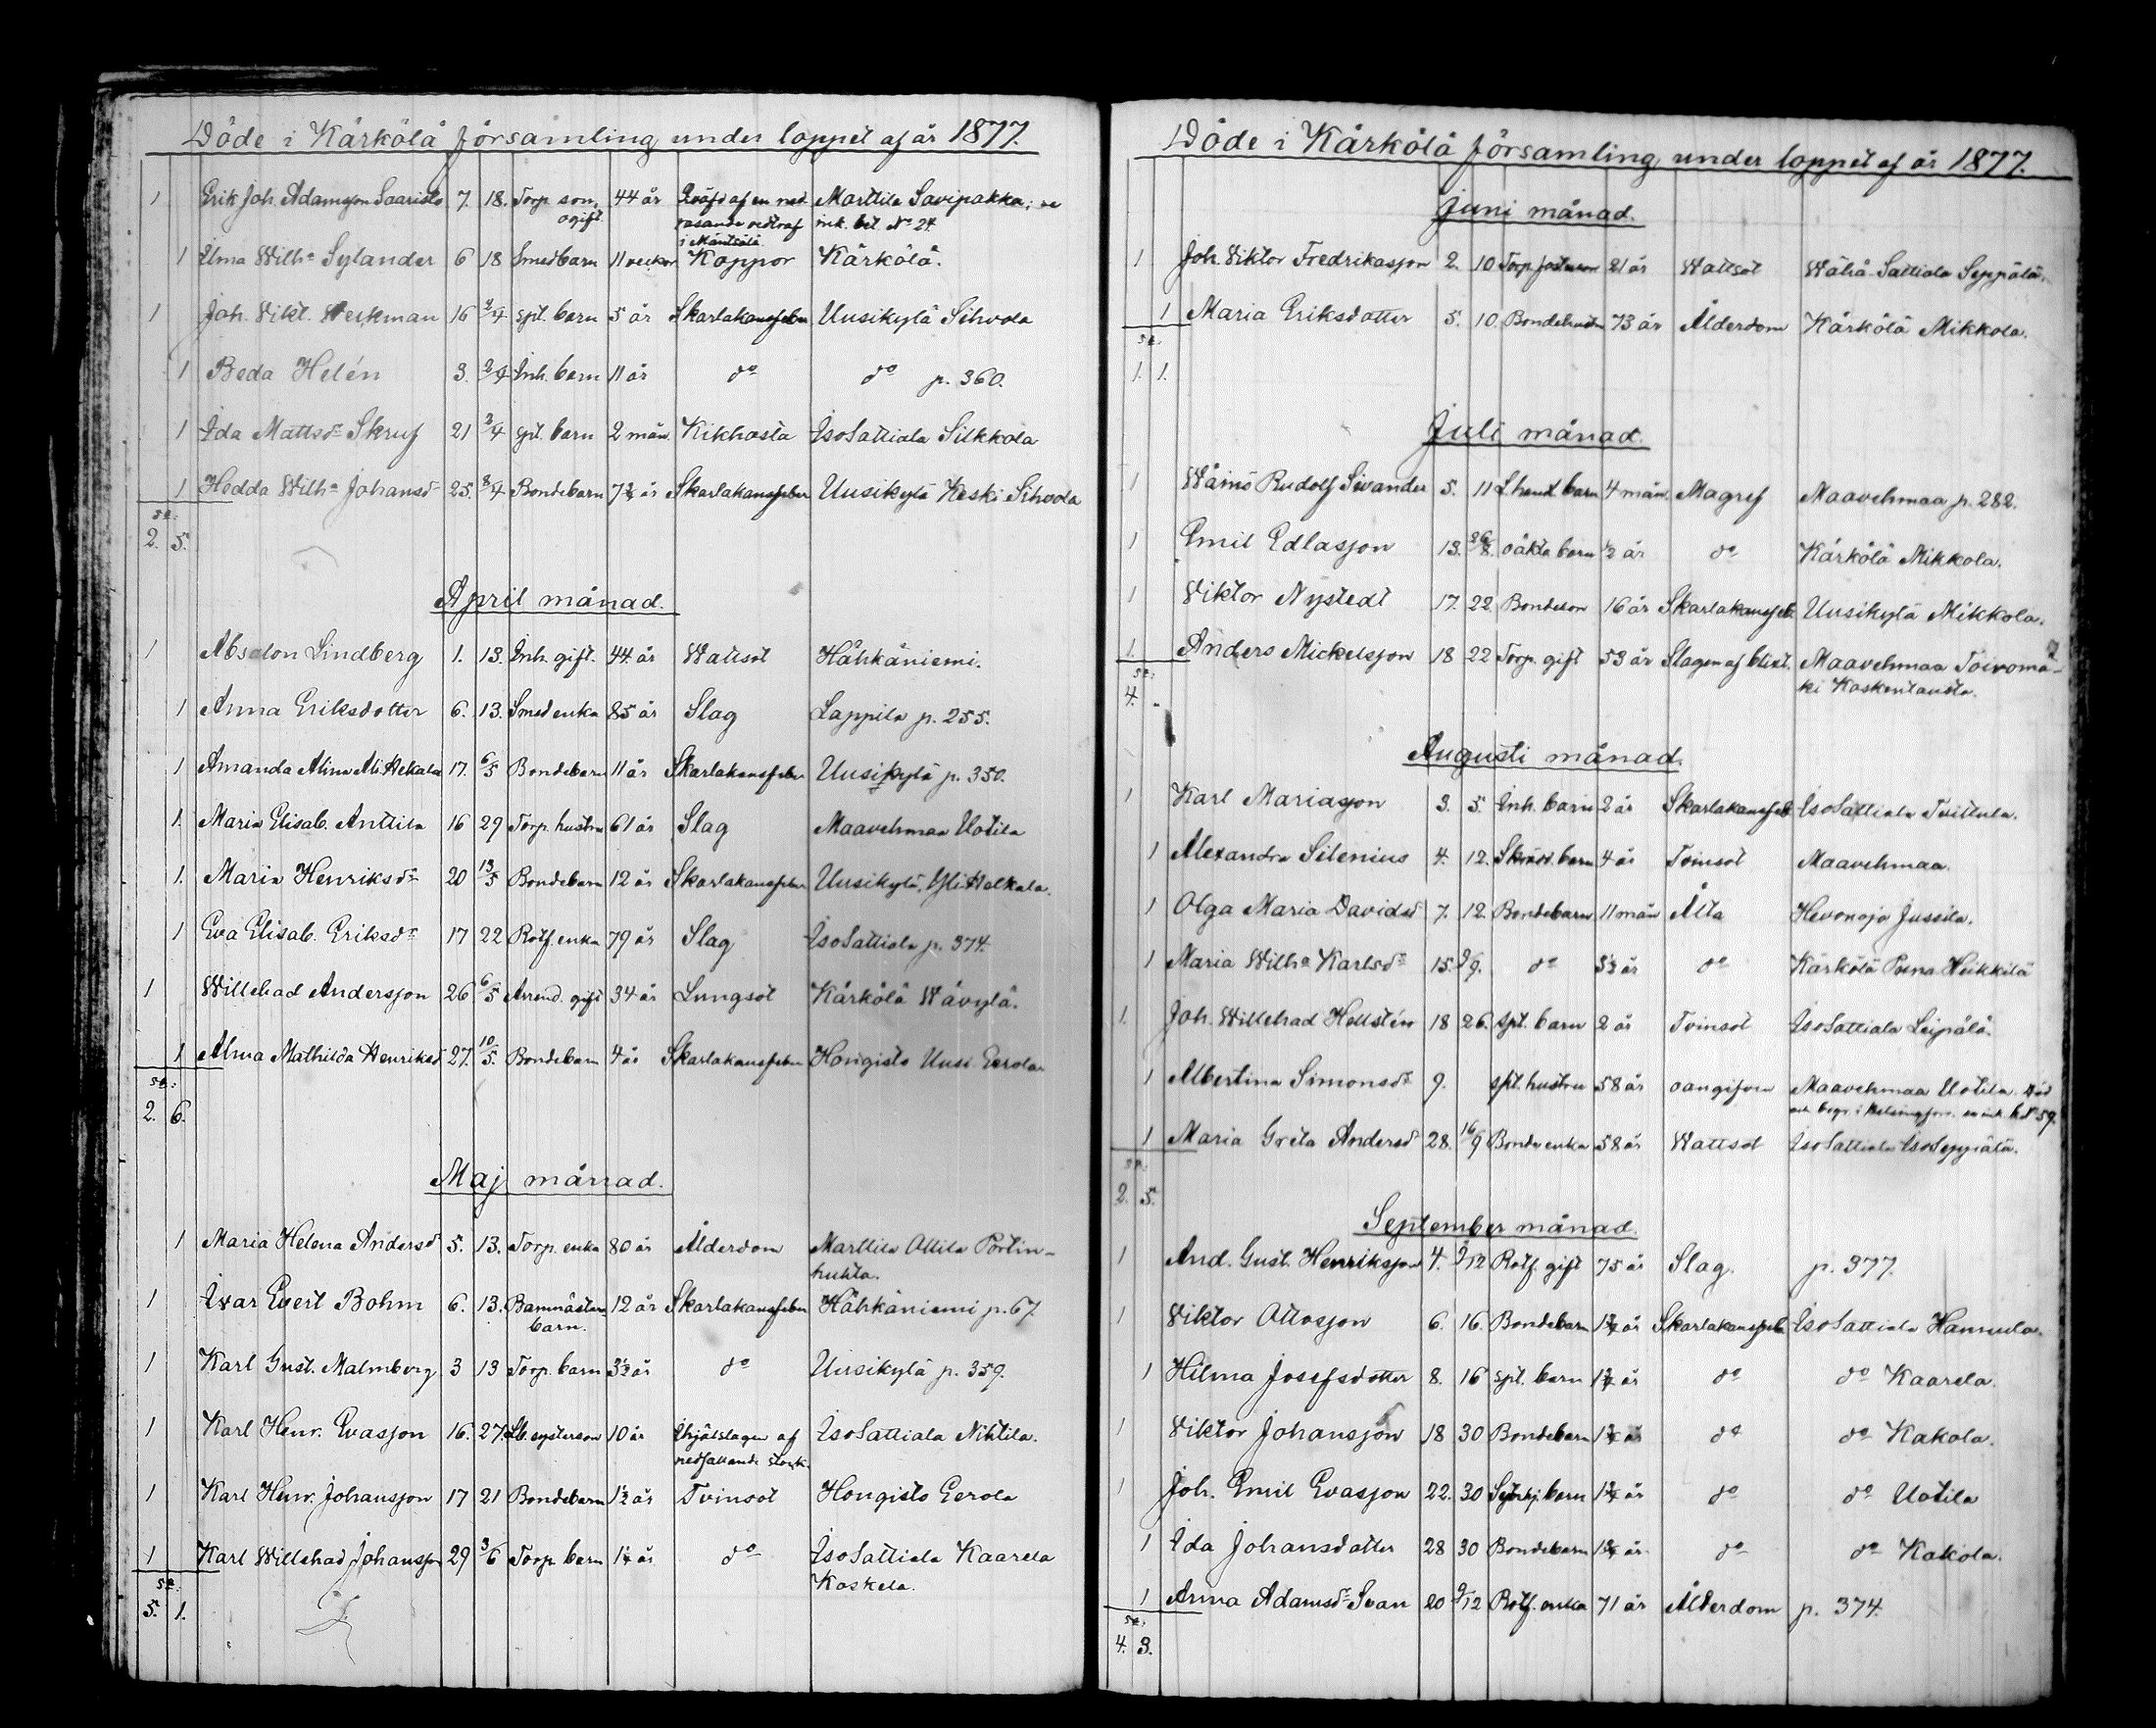 Döde i Kärkölä församling under loppet af år 1877.
1 Erik Joh. Adamsson Saaristo 7. 18. Torp. son, 44 år af en ned Marttila Savipakka; se
ogift rasande vedtraf ink. bet. No 24
i Mäntsälä
1 Ilma Wilh:a Sylander 6 18 Smedbarn 11 veckor Koppor Kärkölä.
1 Joh. Vikt. Weckman 16 2/4 spt. barn 5 år Skarlakansfeber Uusikylä Sihvola
1 Beda Helén 3. 2/4 Inh. barn 11 år do do p. 360.
1 Ida Mattsdr Skruf 21 2/4 spt. barn 2 mån. Kikhosta IsoSattiala Silkkola
1 Hedda Wilh:a Johansdr 25. 8/4 Bondebarn 7 3/4 år Skarlakansfeber Uusikylä Keski Sihvola
s:a:
2. 5.
April månad.
1 Absalon Lindberg 1. 13. Inh. gift. 44 år Wattsot Hähkäniemi.
1 Anna Eriksdotter 6. 13. Smed enka 85 år Slag Lappila p. 255.
1 Amanda Alina Ali Hekala 17. 6/5 Bondebarn 11 år Skarlakansfeber Uusikylä p. 350.
1. Maria Elisab. Anttila 16 29 Torp. hustru 61 år Slag Maavehmaa Uotila
1. Maria Henriksdr 20 13/5 Bondebarn 12 år Skarlakansfeber Uusikylä, Yli Halkala.
1 Eva Elisab. Eriksdr 17 22 Rotf. enka 79 år Slag IsoSattiala p. 374.
1 Willehad Andersson 26 6/5 Arrend. gift 34 år Lungsot Kärkölä Wävylä.
1 Alma Mathilda Henriksd 27. 10/5. Bondebarn 4 år Skarlakansfeber Hongisto Uusi Eerola
s:a:
2. 6.
Maj månad.
1 Maria Helena Andersd 5. 13. Torp. enka 80 år Ålderdom Marttila Ottila Portin-
huhta.
1 Ivar Evert Bohm 6. 13. Banmästare 12 år Skarlakansfeber Hähkäniemi p. 67
barn.
1 Karl Gust. Malmberg 3 13 Torp. barn 3 1/2 år do Uusikylä p. 359.
1 Karl Henr. Evasson 16. 27. systerson 10 år Ihjälslagen af IsoSattiala Niktila.
nedfallande stock.
1 Karl Henr. Johansson 17 21 Bondebarn 1 1/2 år Tvinsot Hongisto Eerola
1 Karl Willehad Johansson 29 3/6 Torp. barn 1 1/4 år do IsoSattiala Kaarela
Koskela.
s:a:
5. 1.
Döde i Kärkölä församling under loppet af år 1877.
Juni månad.
1 Joh. Viktor Fredrikasson 2. 10 Torp. fosterson 21 år Wattsot Wähä Sattiala Seppälä.
1 Maria Eriksdotter 5. 10. Bondehustru 73 år Ålderdom Kärkölä Mikkola.
s:a:
1. 1.
Juli månad.
1 Wäinö Rudolf Sivander 5. 11 barn 4 mån. Magref Maavehmaa p. 282.
1 Emil Edlasson 13. 26/8. oäkta barn 1/2 år do Kärkölä Mikkola.
1 Viktor Nystedt 17. 22 Bondeson 16 år Skarlakansfeb. Uusikylä Mikkola.
1. Anders Mickelsson 18 22 Torp. gift 53 år Slagen af blixt. Maavehmaa Toivomä-
ki Koskentausta.
s:a:
4. -
Augusti månad.
1 Karl Mariasson 3. 5. Inh. barn 2 år Skarlakansfeb IsoSattiala Tvittula.
1 Alexandra Silenius 4. 12. Skrädd. barn 4 år Tvinsot Maavehmaa.
1 Olga Maria Davidsd 7. 12. Bondebarn 11 mån Älta Hevonoja Jussila.
1 Maria Wilh:a Karlsdr 15. 9/9. do 3 1/2 år do Kärkölä Heikkilä
1. Joh. Willehad Hellstén 18 26. spt. barn 2 år Tvinsot IsoSattiala Leipälä.
1 Albertina Simonsdr 9. spt. hustru 58 år oangifven Maavehmaa Uotila. Död
och begr. i Helsingfors. se ink. bet 59.
1 Maria Greta Andersd 28. 16/9 Bonde enka 58 år Wattsot IsoSattiala IsoSeppälä.
s:a:
2. 5.
September månad.
1 And. Gust. Henriksson 4. 9/12 Rotf. gift 75 år Slag. p. 377.
1 Viktor Ottosson 6. 16. Bondebarn 1 3/4 år Skarlakansfeb. IsoSattiala Hannula.
1 Hilma Josefsdotter 8. 16 spt. barn 1 3/4 år do do Kaarela.
1 Viktor Johansson 18 30 Bondebarn 1 3/4 år do do Kakola.
1 Joh. Emil Evasson 22. 30 barn 1 3/4 år do do Uotila
1 Ida Johansdotter 28 30 Bondebarn 1 3/4 år. do do Kakola.
1 Anna Adamsdr Svan 20 9/12 Rotf. enka 71 år Ålderdom p. 374.
s:a:
4. 3.